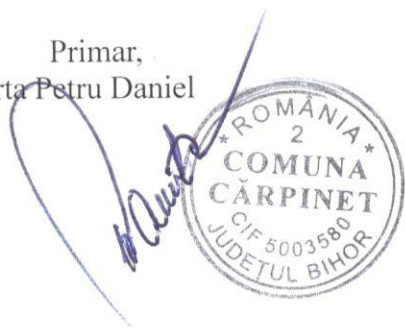 Primar,
rta Petru Daniel
* ROMÂNIA *
2
COMUNA
CĂRPINET
CIF 5003580
JUDEȚUL BIHOR